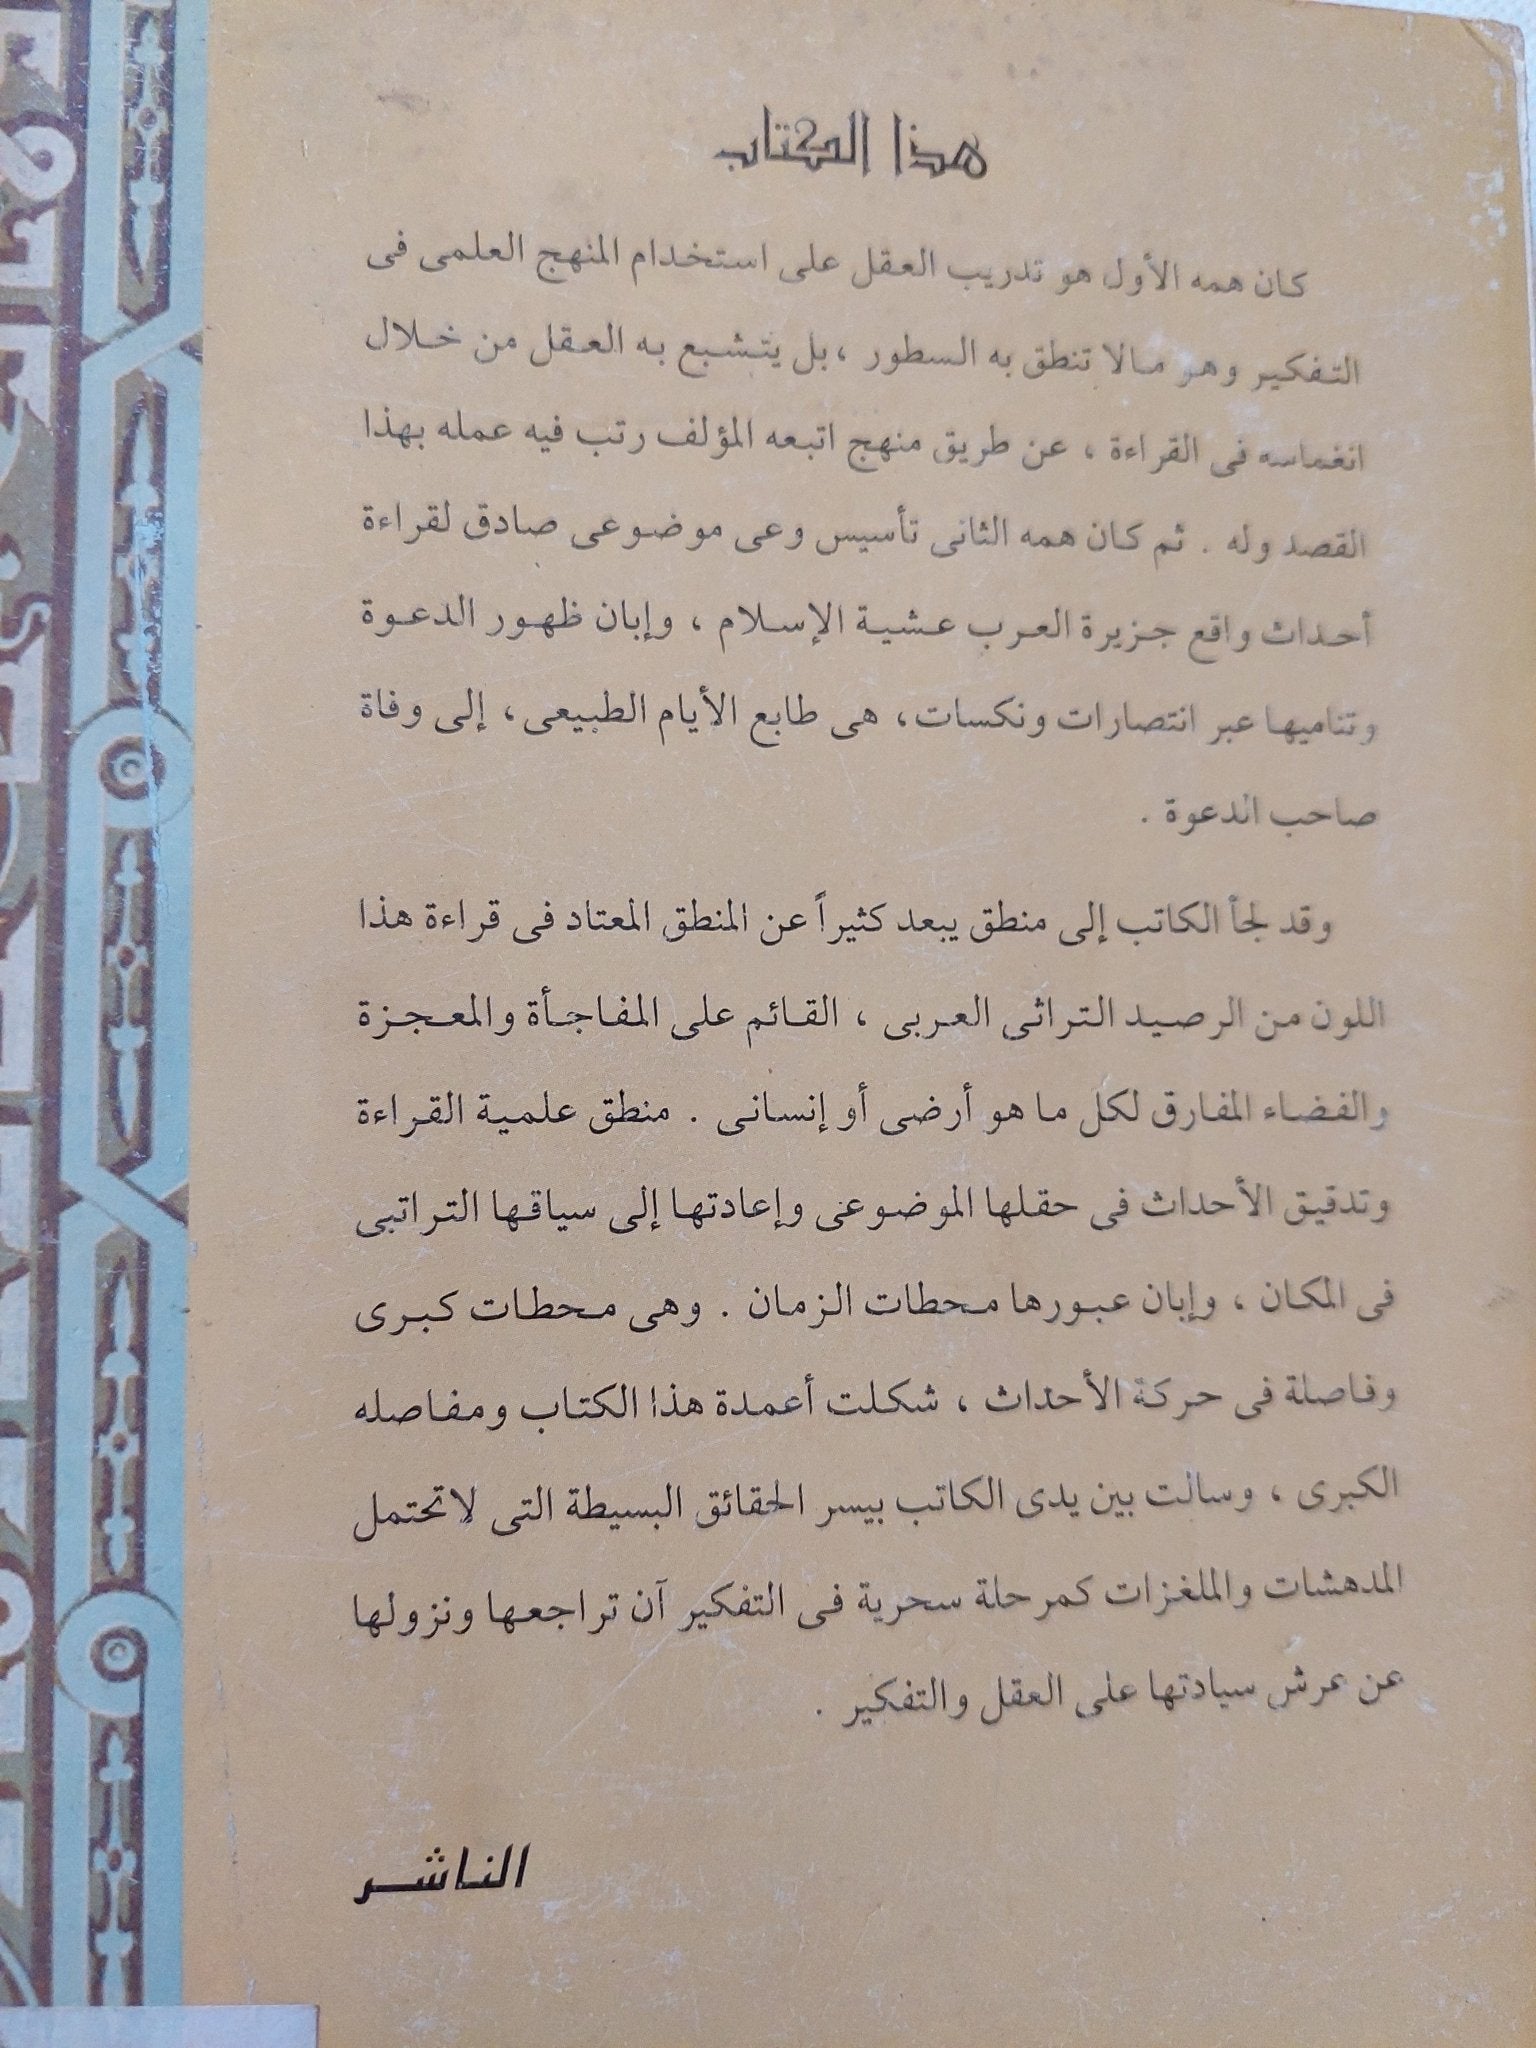 هذا الكتاب
كان همه الأول هو تدريب العقل على استخدام المنهج العلمى فى
التفكير وهو مالا تنطق به السطور ، بل يتشبع به العقل من خلال
انغماسه فى القراءة ، عن طريق منهج اتبعه المؤلف رتب فيه عمله بهذا
القصد وله . ثم كان همه الثانى تأسيس وعى موضوعى صادق لقراءة
أحداث واقع جزيرة العرب عشية الإسلام ، وإبان ظهور الدعوة
وتناميها عبر انتصارات ونكسات ، هى طابع الأيام الطبيعى ، إلى وفاة
صاحب الدعوة .
وقد لجأ الكاتب إلى منطق يبعد كثيراً عن المنطق المعتاد فى قراءة هذا
اللون من الرصيد التراثى العربى ، القائم على المفاجأة والمعجزة
والفضاء المفارق لكل ما هو أرضى أو إنسانى . منطق علمية القراءة
وتدقيق الأحداث فى حقلها الموضوعى وإعادتها إلى سياقها التراتبى
فى المكان ، وإبان عبورها محطات الزمان . وهى محطات كبرى
وفاصلة فى حركة الأحداث ، شكلت أعمدة هذا الكتاب ومفاصله
الكبرى ، وسالت بين يدى الكاتب بيسر الحقائق البسيطة التى لا تحتمل
المدهشات والملغزات كمرحلة سحرية فى التفكير آن تراجعها ونزولها
عن عرش سيادتها على العقل والتفكير .
الناشر